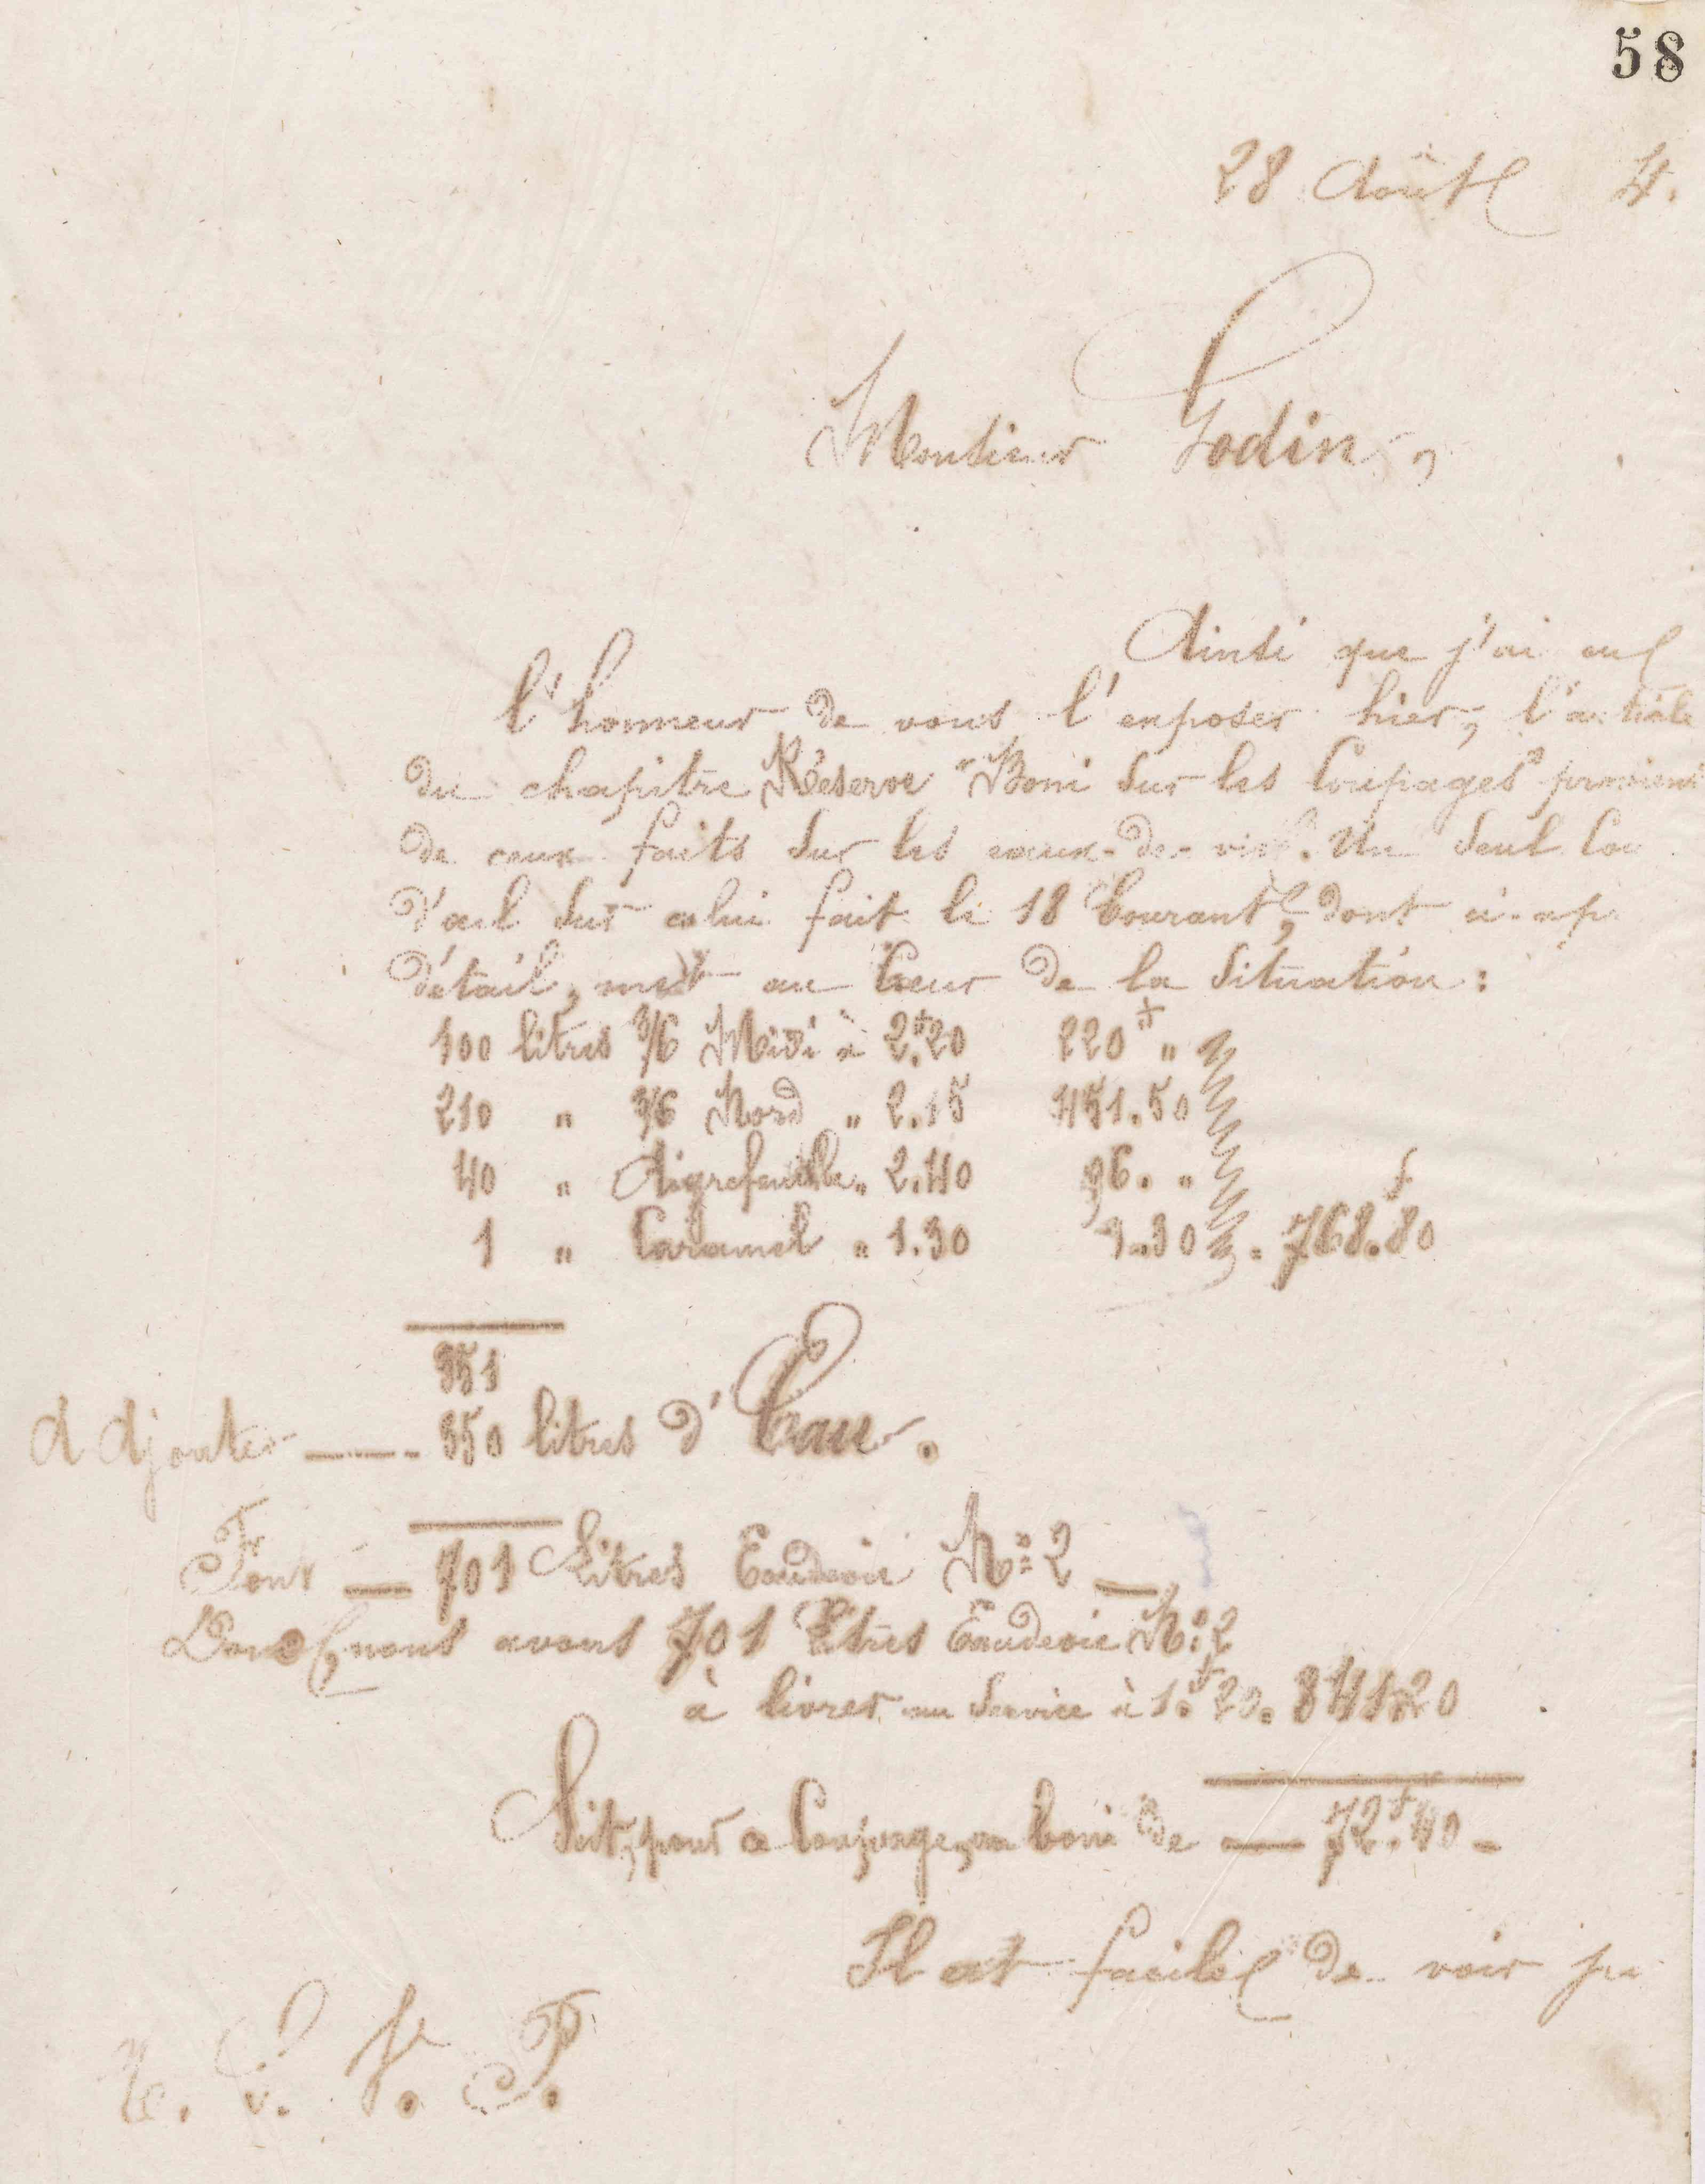 58
28 Août 4.
Monsieur Godin,
Ainsi que j'ai eu
l'honneur de vous l'exposer hier, l'article
du chapitre Réserve "Boni sur les Coupages" provient
de ceux faits sur les eaux-de-vie. Un seul Cou
d'œil sur celui fait le 18 Courant, dont ci-ap
détail, met au Cœur de la situation :
100 litres 3/6 Midi à 2.f20 220f "
210 " 3/6 Nord " 2.15 451.50
40 " Aigrefeuille " 2.40 96. "
1 " Caramel " 1.30 1.30 = 768.f80
351
Adjouter —— 350 litres d'Eau.
Font — 701 Litres Eaudevie No 2 —
Donc, nous avons 701 Litres Eaudevie No 2
à livrer au Service à 1.f20. 841.20
Soit, pour ce Coupage, un boni de — 72.f40 -
Il est facile de voir pa
T. S. V. P.